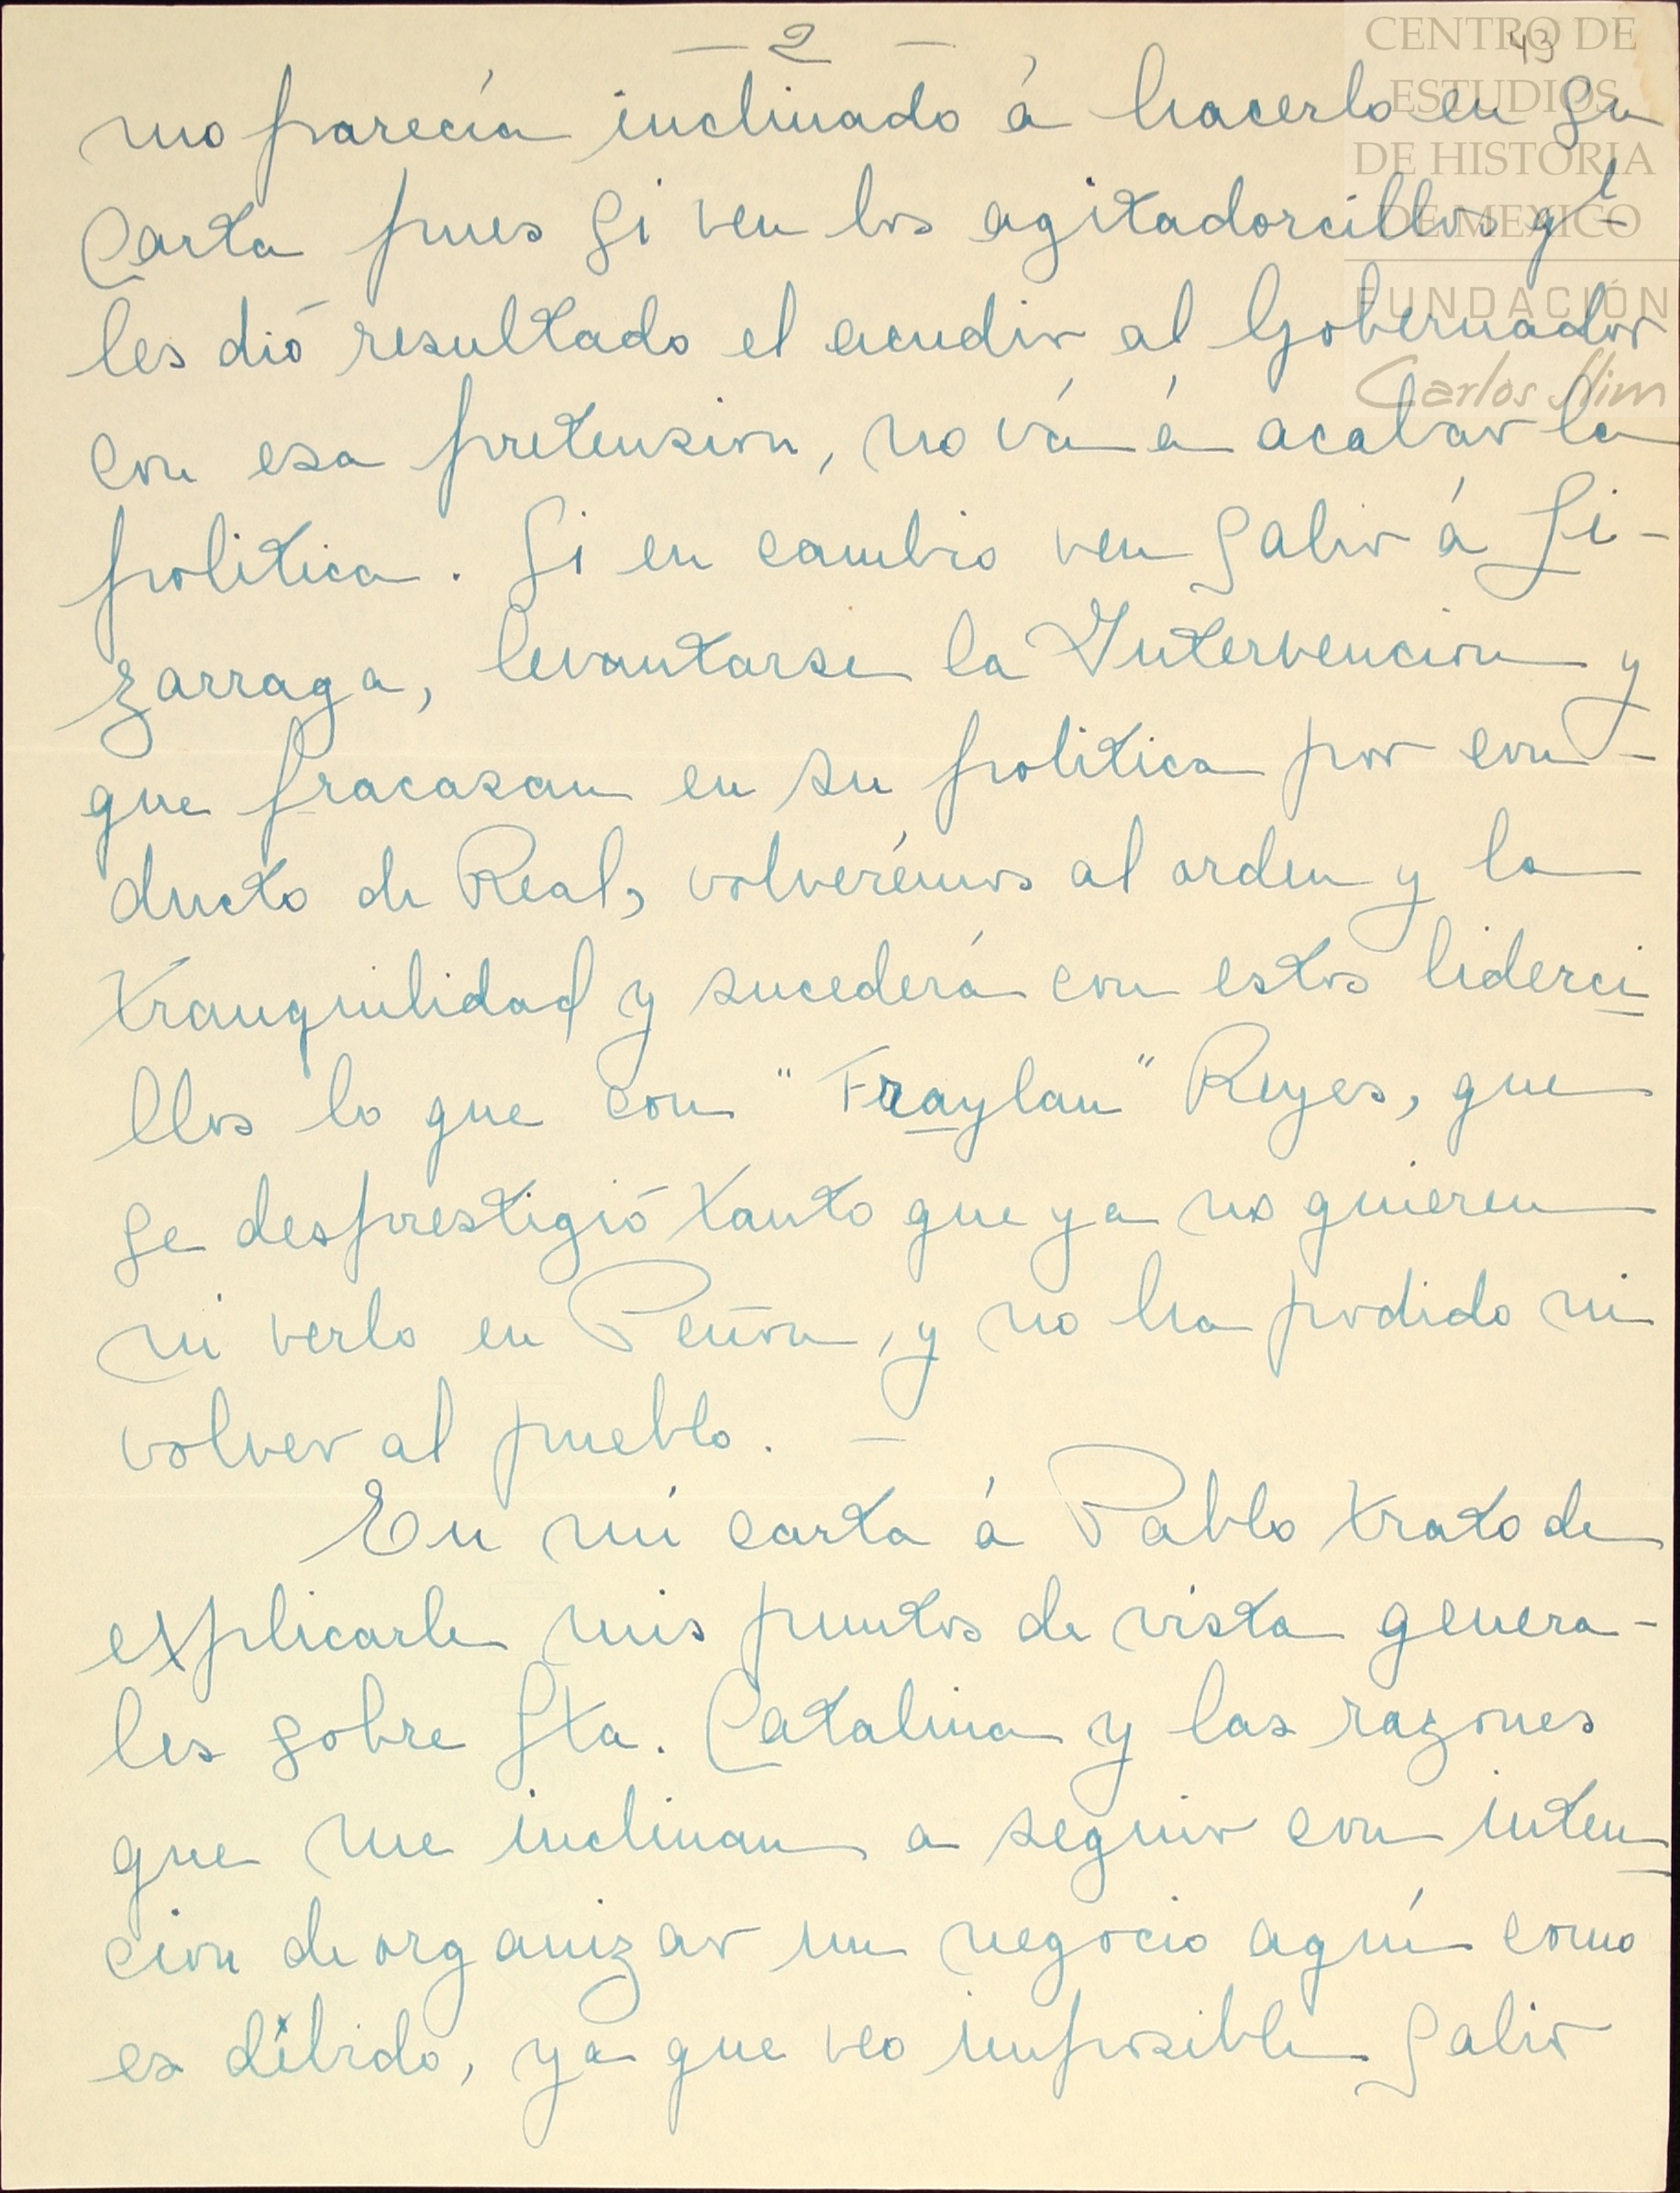 — 2 —
43
CENTRO DE
ESTUDIOS
DE HISTORIA
DE MEXICO
FUNDACIÓN
Carlos Slim
mo parecía inclinado á hacerlo en su
Carta pues si ven los agitadorcillos qe
les dió resultado el acudir al Gobernador
con esa pretension, no vá á acabar la
politica. Si en cambio ven salir á Li-
zarraga, levantarse la Intervencion y
que fracasan en su politica por con-
ducto de Real, volverémos al orden y la
tranquilidad y sucederá con estos liderci
llos lo que con "Fraylan" Reyes, que
se desprestigió tanto que ya no quieren
ni verlo en Peñon, y no ha podido ni
volver al pueblo. —
En mi carta á Pablo trato de
explicarle mis puntos de vista genera-
les sobre Sta. Catalina y las razones
que me inclinan a seguir con inten
cion de organizar un negocio aquí como
es débido, ya que veo imposible salir